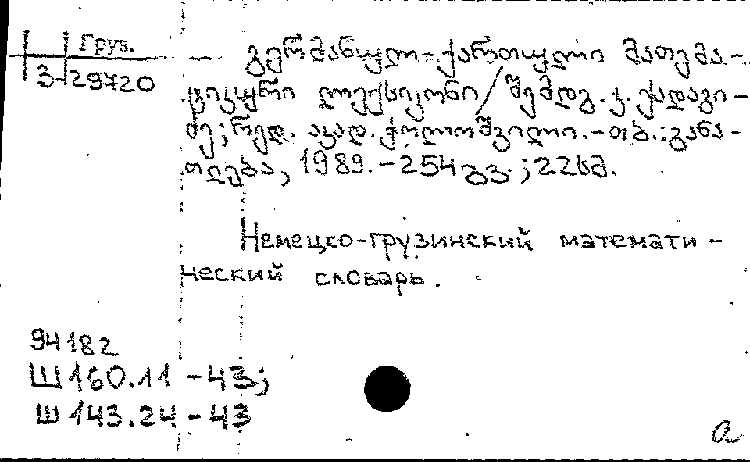 Груз.
3-29720
გერმანულ-ქართული მათემა-
ტიკური ლექსიკონი / შემდგ. კ. ქადაგი-
ძე; რედ. აკად. ჭოღოშვილი. - თბ.: განა-
თლება, 1989. - 254 გვ.; 22სმ.
Немецко-грузинский математи-
ческий словарь.
94182
Ш160.11-43;
Ш143.24-43
а